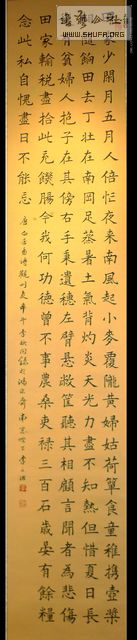 WWW.SHUFA.ORG
家少閒月五月人倍忙夜來南風起小麥覆隴黃婦姑荷簞食童稚攜壺漿
隨餉田去丁壯在南岡足蒸暑土氣背灼炎天光力盡不知熱但惜夏日長
有貧婦人抱子在其傍右手秉遺穗左臂懸敝筐聽其相顧言聞者為悲傷
田家輸稅盡拾此充饑腸今我何功德曾不事農桑吏祿三百石歲晏有餘糧
念此私自愧盡日不能忘 唐白居易詩觀刈麥